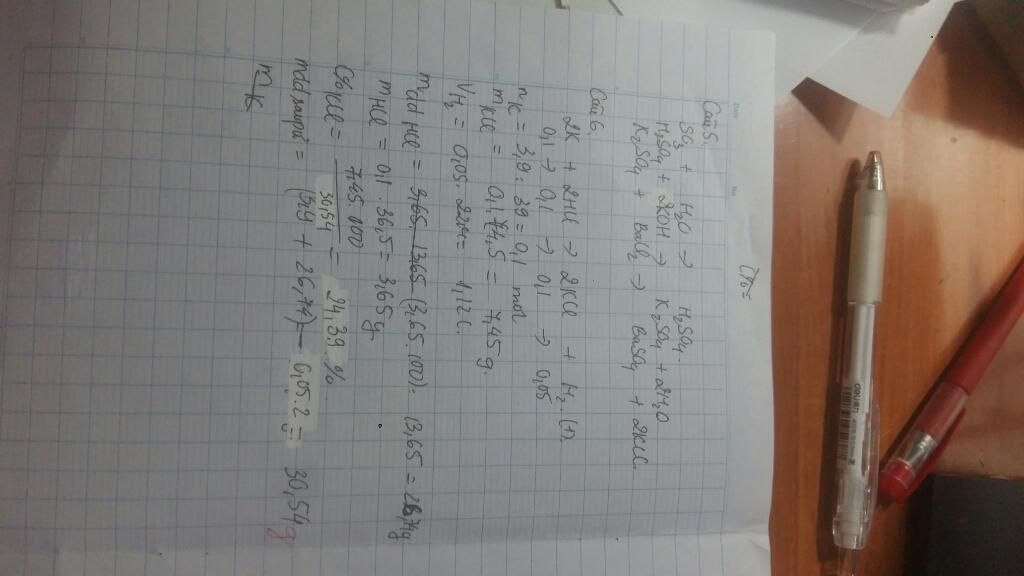 C% =
Câu 5.
SO3 + H2O → H2SO4
H2SO4 + 2KOH → K2SO4 + 2H2O
K2SO4 + BaCl2 → BaSO4 + 2KCl.
Câu 6.
2K + 2HCl → 2KCl + H2. (1).
0,1 → 0,1 → 0,1 → 0,05
nK = 3,9 : 39 = 0,1 mol
mKCl = 0,1. 74,5 = 7,45 g.
VH2 = 0,05. 22,4 = 1,12 l.
mdd HCl = (3,65.100): 13,65 = 26,74g
mHCl = 0,1. 36,5 = 3,65 g
C%KCl = 7,45.100 / 30,54 = 24,39 %.
mdd = (3,9 + 26,74) - 0,05.2 = 30,54g
mK